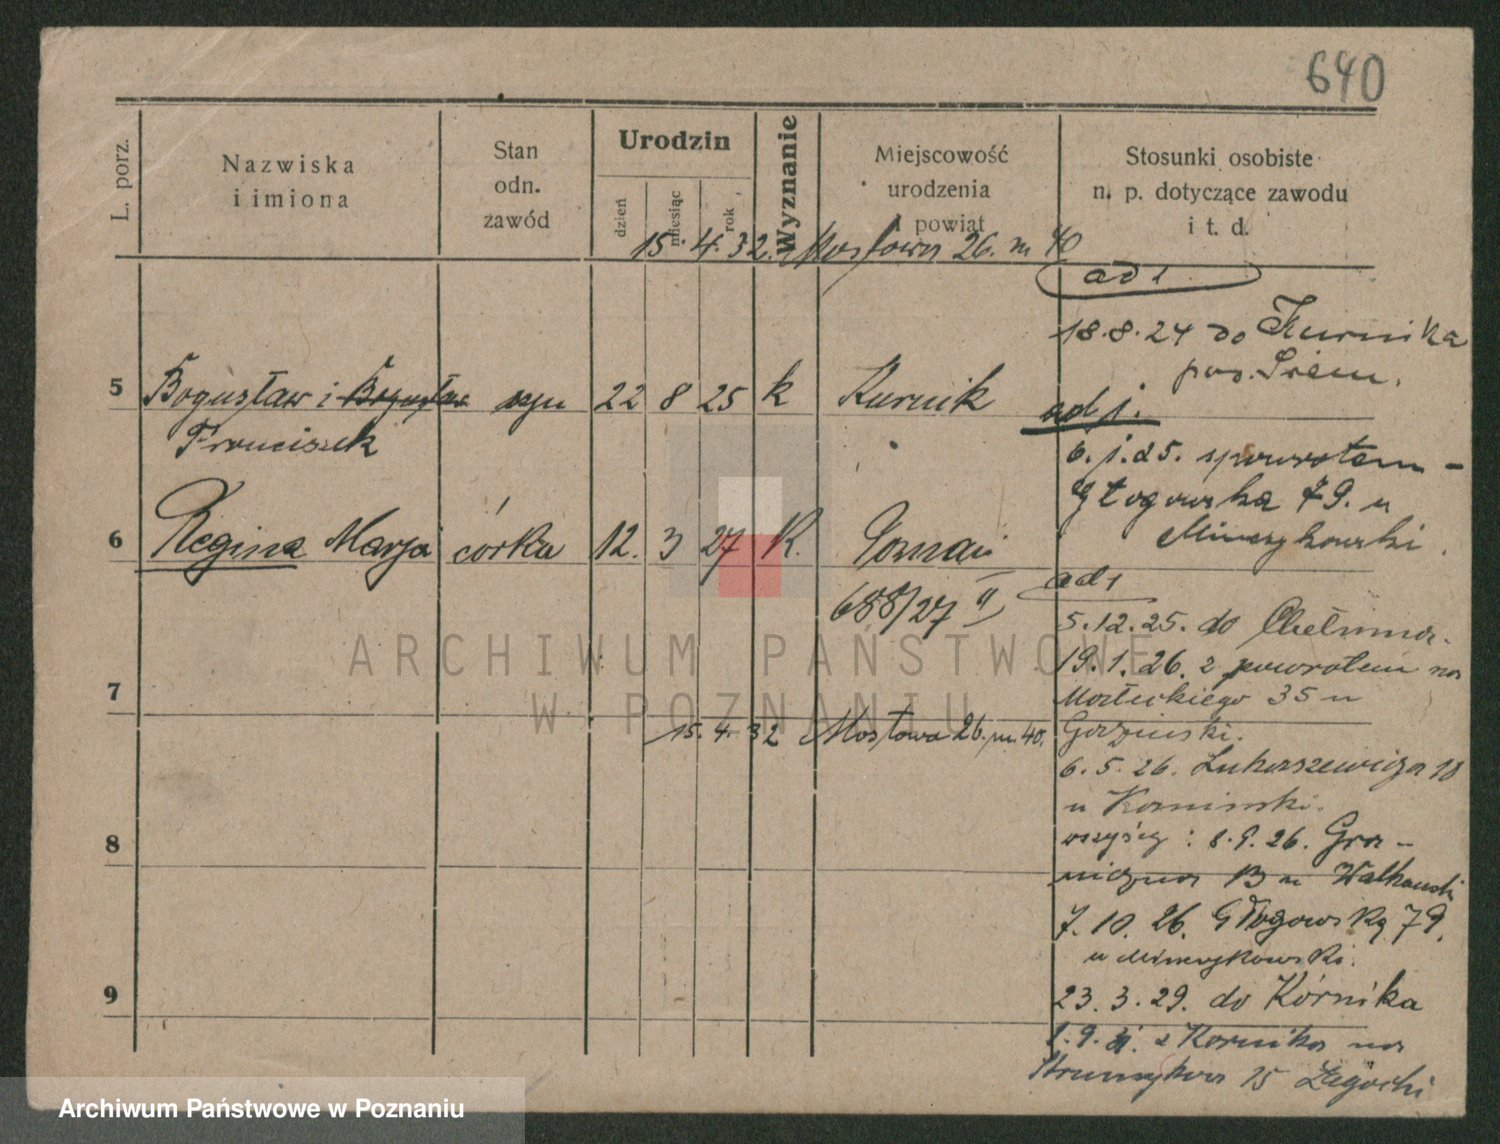 640
L. porz.
Nazwiska
i imiona
Stan
odn.
zawód
Urodzin
dzień
miesiąc
rok
Wyznanie
Miejscowość
urodzenia
i powiat
Stosunki osobiste
n. p. dotyczące zawodu
i t. d.
15. 4. 32. Mostowa 26. m 40
ad 1
18.8.24 do Kurnika
pow. Śrem.
5 Bogusław i Bogusław syn 22 8 25 k Kurnik
Franciszek
ad j.
6. j. 25. spowrotem -
Głogowska 79. u
Mineykowski.
6 Regina Marja córka 12. 3 27 K. Poznań
688/27 II
ad 1
5.12.25. do Chełmna.
19.1.26. z powrotem na
Małeckiego 35 u
7
15. 4. 32 Mostowa 26. m. 40.
6. 5. 26. Łukaszewicza 18
u
wszyscy : 8.9.26. Gra-
niczna 13 u
8
7. 10. 26. Głogowska 79.
u Mineykowski.
9
23. 3. 29. do Kórnika
1. 9. 31. z Kornika na
Strumykowa 15
ARCHIWUM PAŃSTWOWE
W POZNANIU
Archiwum Państwowe w Poznaniu